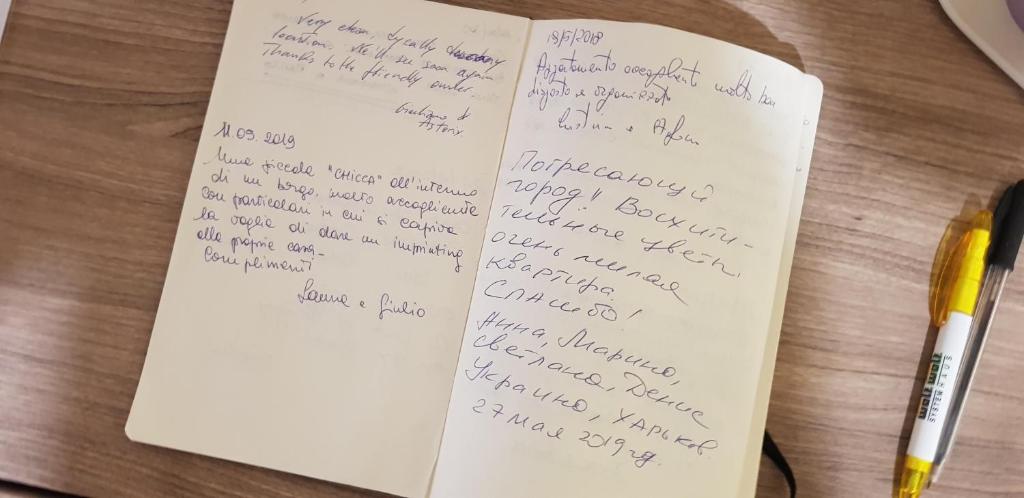 Very clean, tycally
location. We'll see soon again
Thanks to the friendly owner.
Giuliano &
Asterix
11.09.2019
Una piccola "CHICCA" all'interno
di un borgo, molto accogliente
con particolari in cui si capiva
la voglia di dare un imprinting
alla propria casa-
Complimenti
Laura e Giulio
18/5/2018
Appartamento accogliente molto ben
disposto e organizzato
e
Потресающий
город!! Восхити-
тельные цветы,
очень милая
квартира.
Спасибо!
Анна, Марина,
Светлана, Денис
Украина, Харьков.
27 мая 2019 гд.